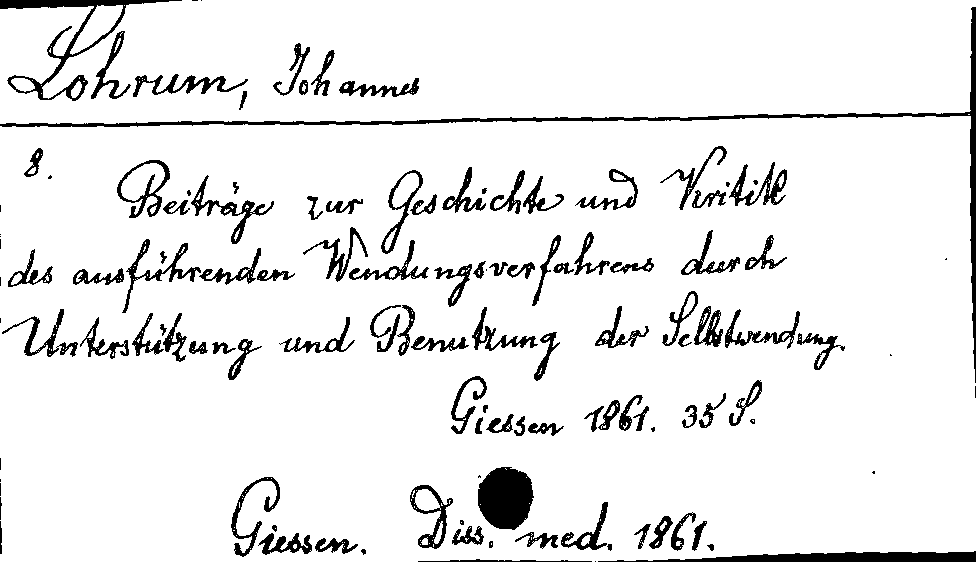 Lohrum, Johannes
8.
Beiträge zur Geschichte und Kritik
des ausführenden Wendungsverfahrens durch
Unterstützung und Benutzung der Selbstwendung.
Giessen 1861. 35 S.
Giessen. Diss. med. 1861.